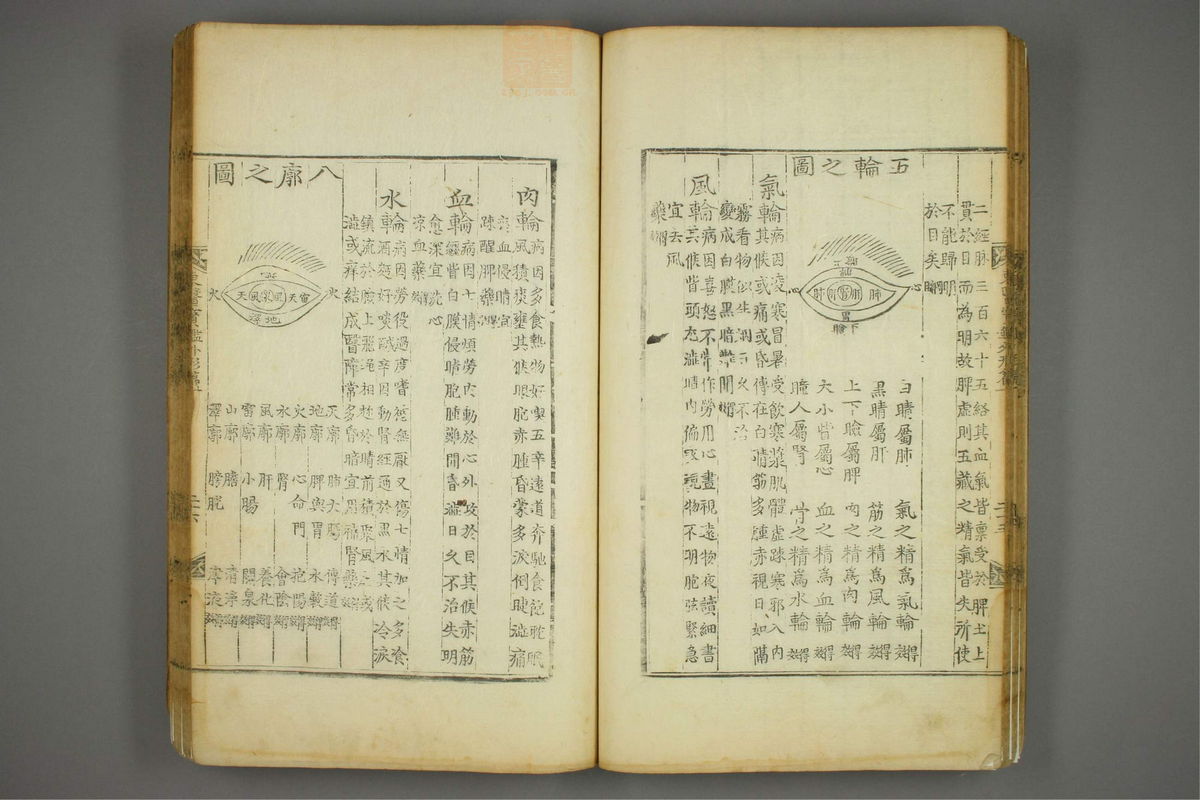 二經脉三百六十五絡其血氣皆稟受於脾土上
貫於目而為明故脾虛則五藏之精氣皆失所使
不能歸明
於目矣
五輪之圖
白睛屬肺 氣之精為氣輪
黑睛屬肝 筋之精為風輪
上下瞼屬脾 肉之精為肉輪
大小眥屬心 血之精為血輪
瞳人屬腎 骨之精為水輪
氣輪病因凌寒冒暑受飲寒漿肌體虛踈寒邪入內
其候或痛或昏傳在白睛筋多腫赤視日如隔
霧看物似生烟 久不治
變成白膜黑暗難開
風輪病因喜怒不常作勞用心晝視遠物夜讀細書
其候眥頭尤澁睛內偏 視物不明胞弦緊急
宜去風
藥
肉輪病因多食熱物好喫五辛遠道奔馳食飽耽眠
風積痰壅其候眼胞赤腫昏蒙多淚倒睫澁痛
血侵睛宜
踈醒脾藥
血輪病因七情煩勞內動於心外攻於目其候赤筋
經眥白膜侵睛胞腫難開昏澁日久不治失明
愈深宜洗心
凉血藥
水輪病因勞役過度嗜慾無厭又傷七情加之多食
酒麪好啖醎辛因動腎經通於黑水其候冷淚
鎮流於臉上飛蠅相趂於睛前積聚風
澁或痒結成翳障常多昏暗宜 補腎藥
八廓之圖
天廓 肺大腸 傳道
地廓 脾與胃 水穀
火廓 心命門 抱陽
水廓 腎 會陰
風廓 肝 養化
雷廓 小腸 關泉
山廓 膽 清淨
澤廓 膀胱 津液